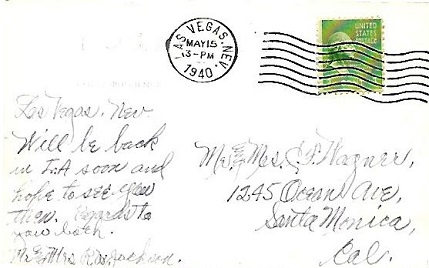 LAS VEGAS, NEV.
MAY 15
3-PM
1940
UNITED
STATES
POSTAGE
Las Vegas, Nev.
Will be back
in L.A soon and
hope to see you
then. Regards to
you both.
Mr & Mrs Jackson.
Mr & Mrs. C. P. Wagner,
1245 Ocean Ave,
Santa Monica,
Cal.